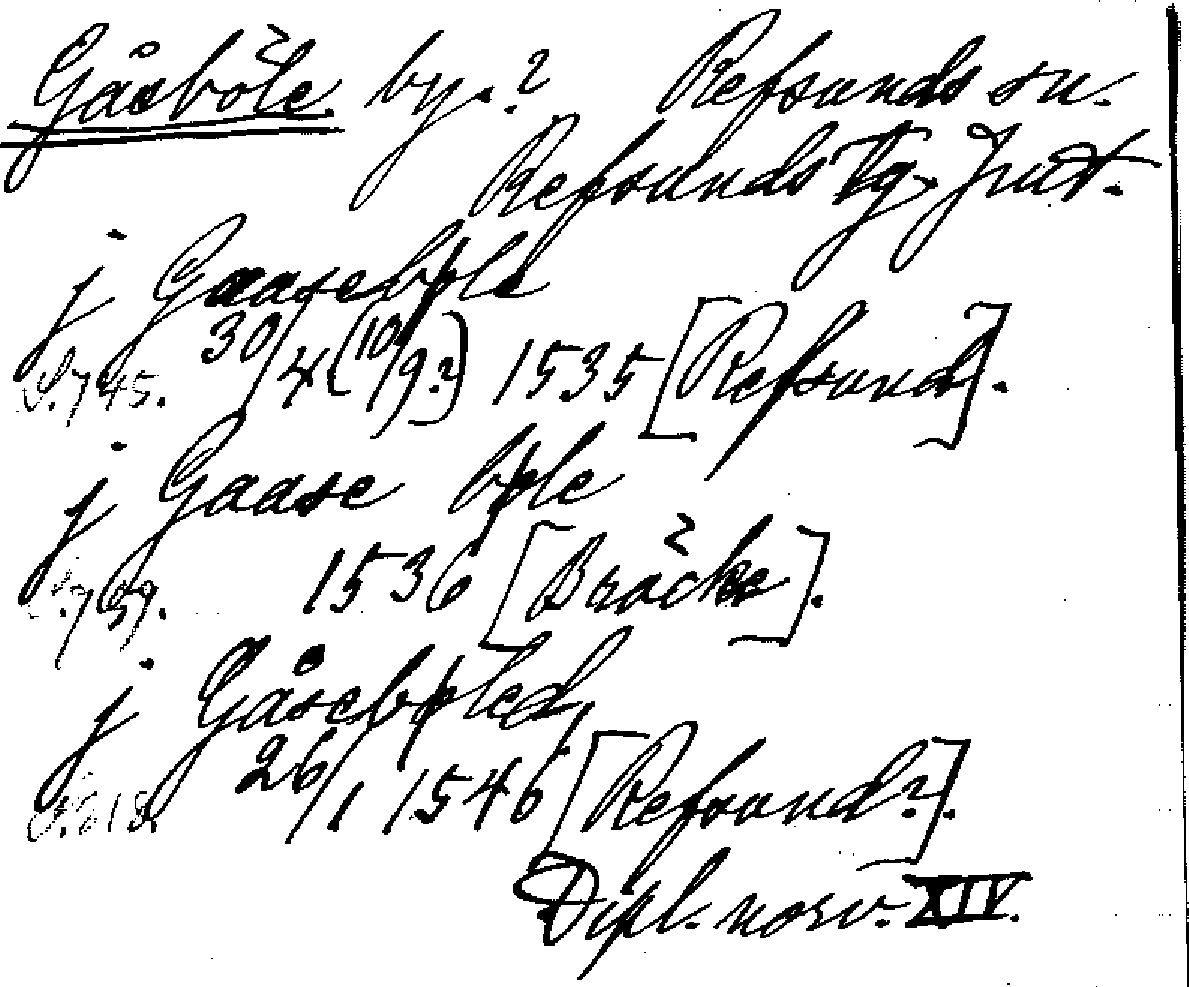 Gåsböle. by.? Refsunds sn.
Refsunds Tg. Jmt.
j Gaasebøle
S.745. 30/4 (10/9?) 1535 [Refsund].
j Gaase bøle
S.759. 1536 [Bräcke].
j Gåsebøled,
S.818. 26/1 1546 [Refsund?].
Dipl. norv. XIV.